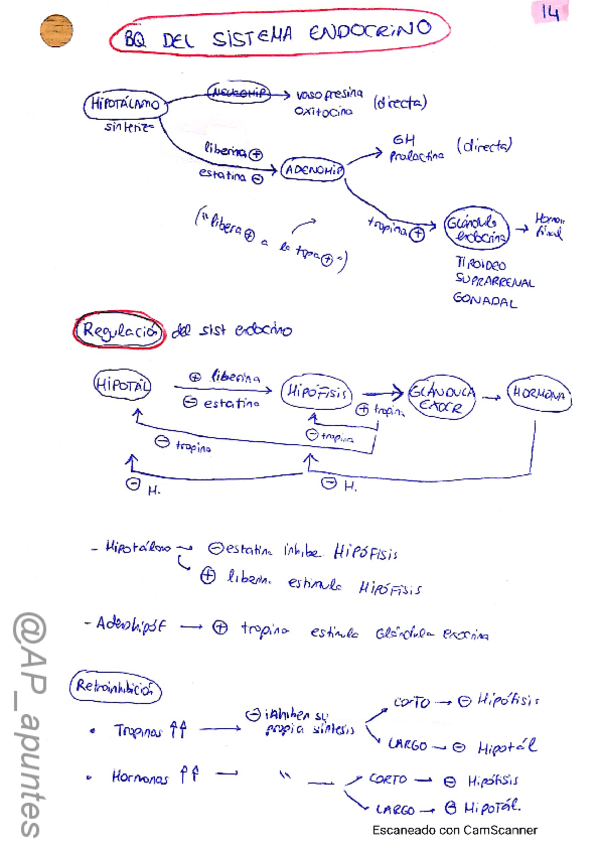 14
BQ DEL SISTEMA ENDOCRINO
HIPOTÁLAMO
sintetiza
NEUROHIP
vasopresina
oxitocina
(directa)
liberina +
estatina -
ADENOHIP
GH
Prolactina
(directa)
tropina +
Glándula
endocrina
Hormona
final
TIROIDEO
SUPRARRENAL
GONADAL
("libera + a la tropa +")
Regulación del sist endocrino
HIPOTÁL
+ liberina
- estatina
HIPÓFISIS
+ tropina
GLÁNDULA
HORMONA
- tropina
- tropina
- H.
- H.
- Hipotálamo → - estatina inhibe HIPÓFISIS
+ liberin. estimula HIPÓFISIS
- Adenohipóf → + tropina estimula Glándula exocrina
Retroinhibición
• Tropinas ↑↑ → - inhiben su
propia síntesis
CORTO → - Hipófisis
LARGO → - Hipotál
• Hormonas ↑↑ → " CORTO → - Hipófisis
LARGO → - HIPOTÁL.
@AP_apuntes
Escaneado con CamScanner